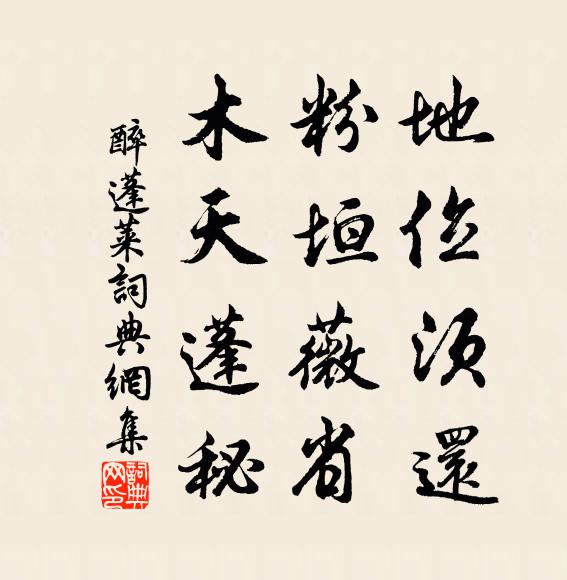 地位須還
粉垣薇省
木天蓬秘
醉蓬萊詞典網集
詞典网印